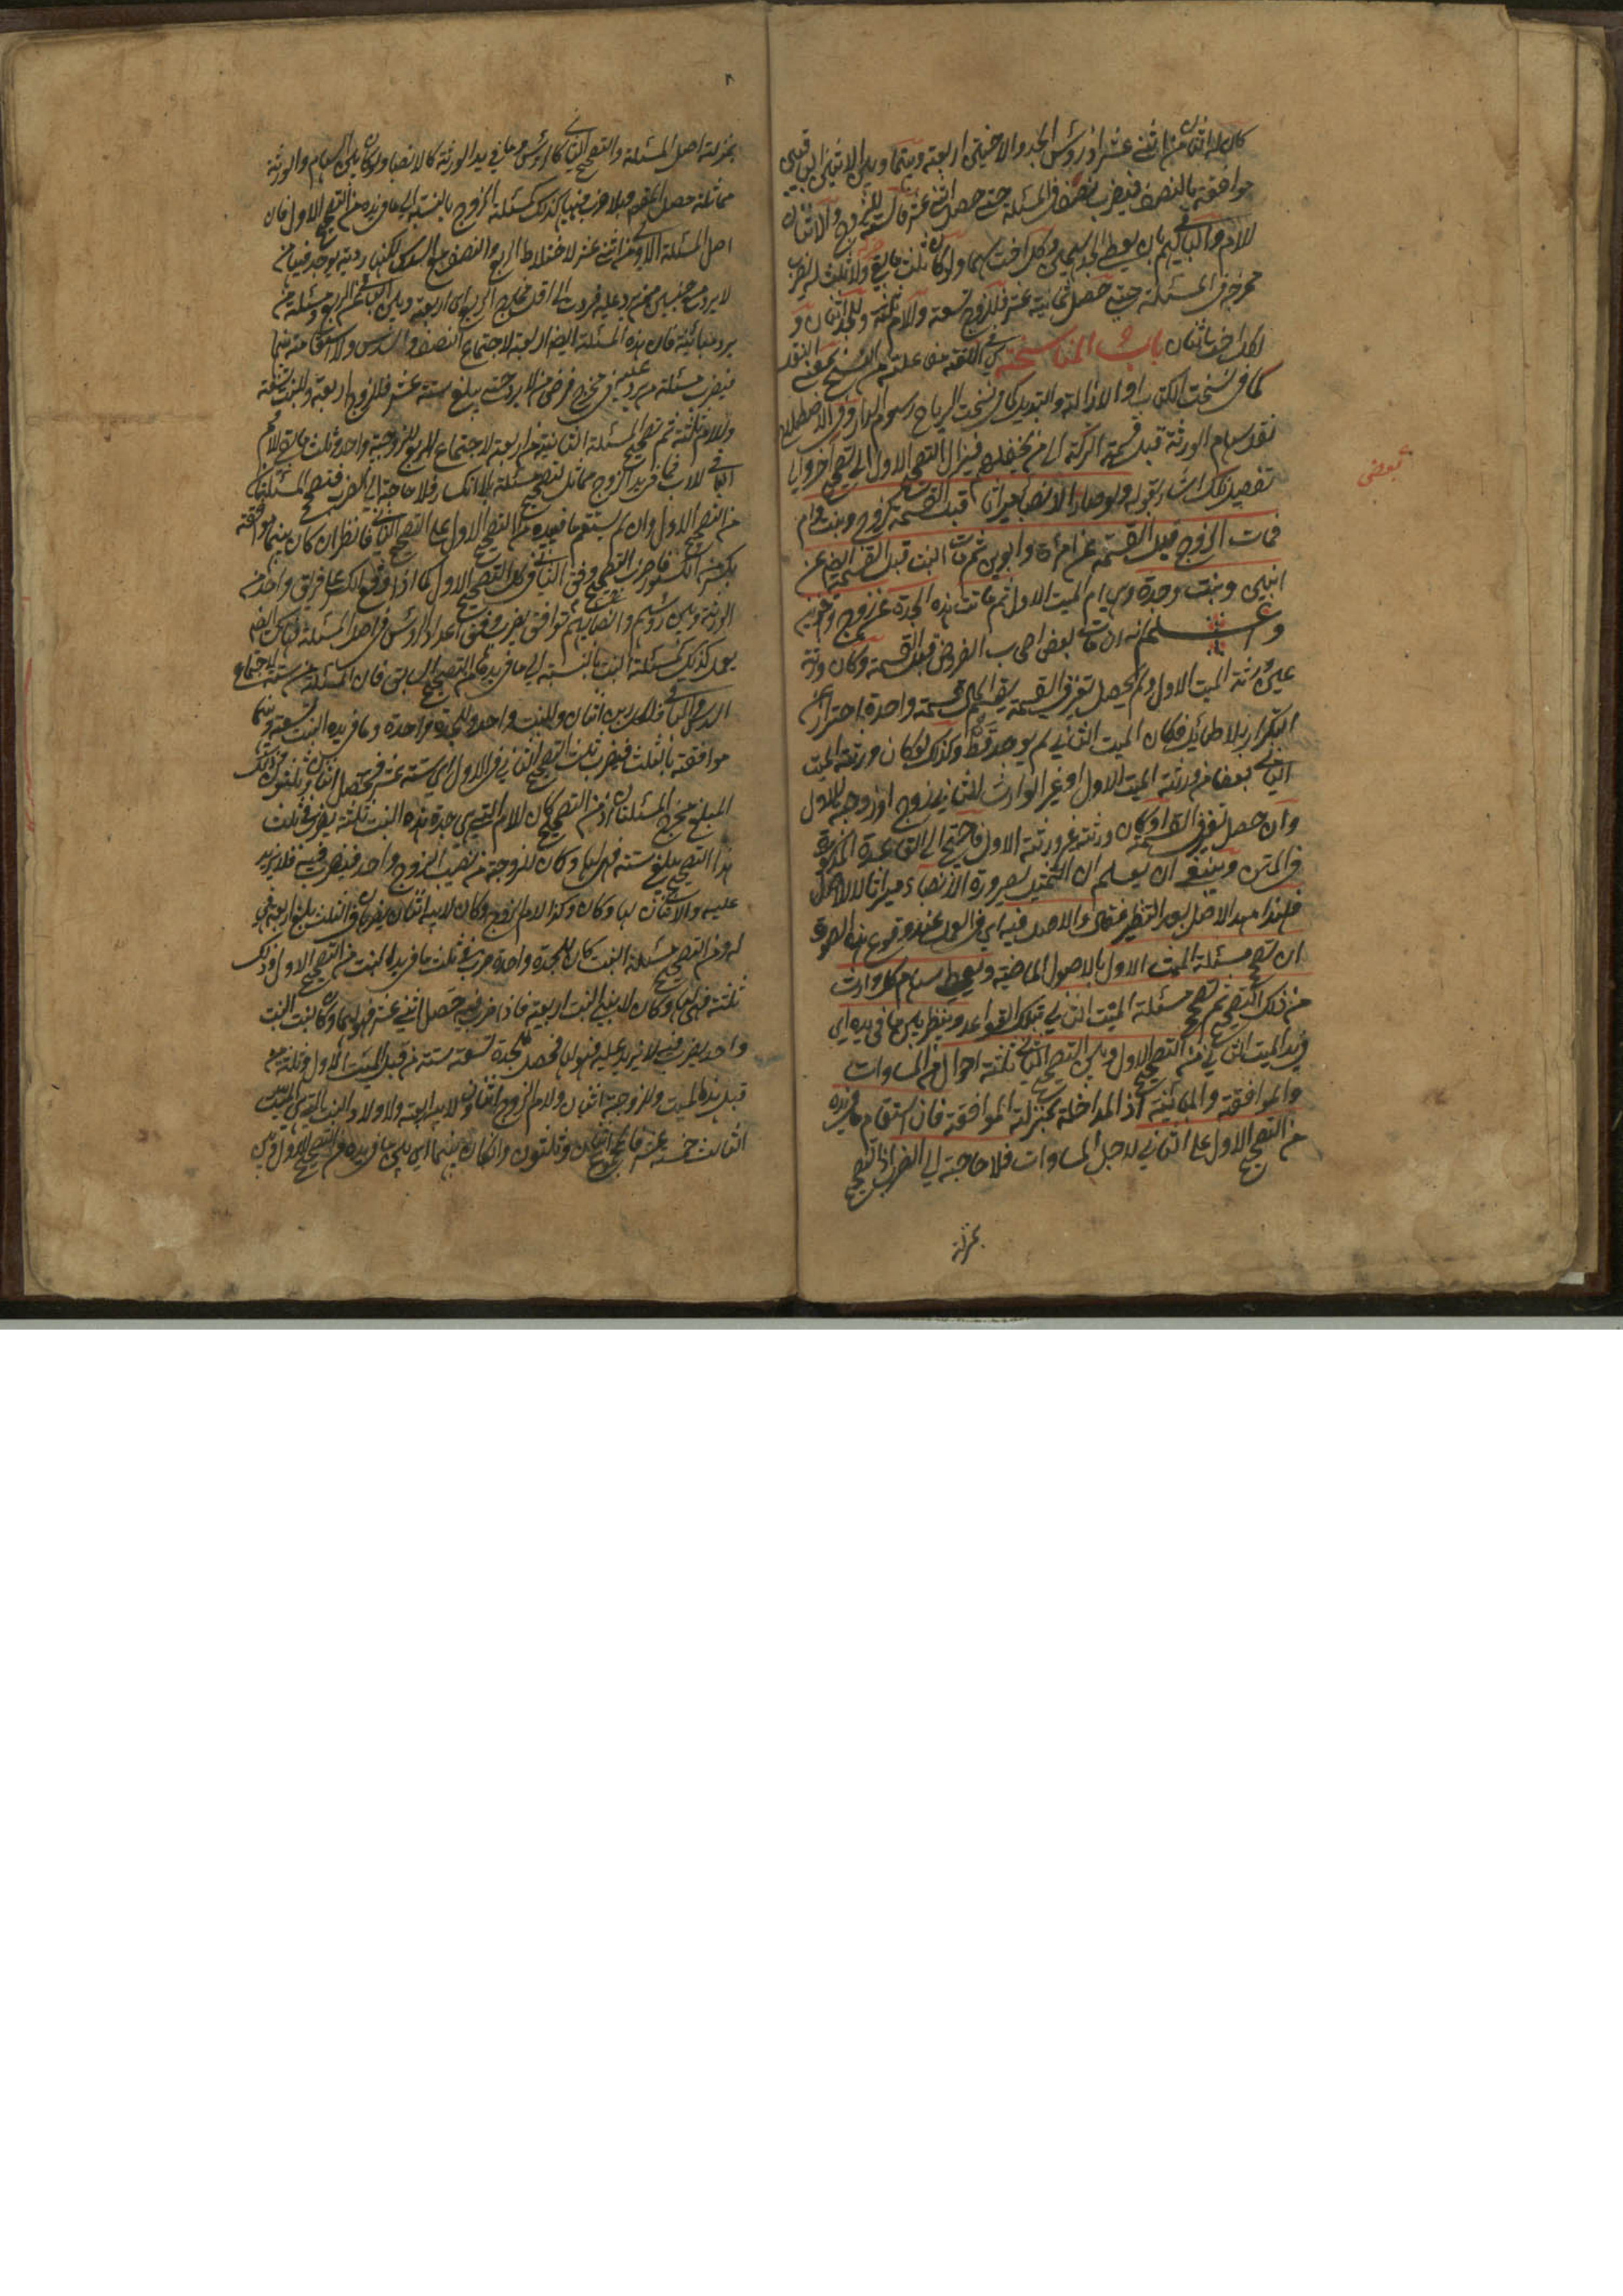 كان له اثنان من اثنى عشر اذ رؤس الجد والاختين اربعة وبينها وبين الاثنين الباقيين
موافقة بالنصف فيضرب نصفها في المسئلة حتى حصل اثنى عشر فالستة للزوج والاثنان
للام والباقي لهم بان يعطى الجد سهمين ولكل اخت سهما ولو كان ثلث ما بقي ولا ثلث له يضرب
مخرجه في المسئلة حتى حصل ثمانية عشر فللزوج تسعة وللام ثلثة وللجد اثنان و
لكل اخت اثنان باب المناسخة هي في اللغة مفاعلة من النسخ بمعنى النقل
كما في نسخت الكتاب او الازالة والتبديل كما في نسخت الرياح رسوم الدار وفي الاصطلاح
نقل سهام الورثة قبل قسمة التركة الى من يخلفهم فينزل التصحيح الاول الى تصحيح آخر والى
تفصيل تلك اشار بقوله ولو صار الانصباء ميراثا قبل القسمة كزوج وبنت وام
فمات الزوج قبل القسمة عن امرأة وابوين ثم ماتت البنت قبل القسمة ايضا عن
ابنين وبنت وجدة وهي ام الميت الاول ثم ماتت هذه الجدة عن زوج واخوين
واعلم انه ان مات بعض اصحاب الفروض قبل القسمة وكان ورثته
عين ورثة الميت الاول ولم يحصل تغير في القسمة يقسم المال قسمة واحدة احترازا عن
التكرار بلا طائل فكان الميت الثاني لم يوجد قط وكذلك لو كان ورثة الميت
الثاني بعضا من ورثة الميت الاول او غير الوارث للثاني زوج او زوجة للاول
وان حصل تغير في القسمة او كان ورثته غير ورثة الاول فاحتيج الى القاعدة المذكورة
في المتن وينبغي ان يعلم ان التمثيل لصيرورة الانصباء ميراثا لا للاصل
فلهذا مهد الاصل بعد التنظير فقال والاصل فيه اي في العمل عند وقوع هذه الصورة
ان تصحح مسئلة الميت الاول بالاصول الماضية ويعطى سهام كل وارث
من ذلك التصحيح ثم تصحح مسئلة الميت الثاني بتلك القواعد وينظر بين ما في يده اي
في يد الميت الثاني من التصحيح الاول وبين التصحيح الثاني ثلثة احوال من المساوات
والموافقة والمباينة اذ المداخلة بمنزلة الموافقة فان استقام ما في يده
من التصحيح الاول على الثاني لاجل المساوات فلا حاجة الى الضرب اذ التصحيح
بمنزلة
بعض
بمنزلة اصل المسئلة والتصحيح الثاني كالرؤس وما في يد الورثة كالانصباء ولو كان بين السهام والورثة
مماثلة حصل المقصود بلا ضرب فهنا كذلك كمسئلة الزوج بالنسبة الى ما في يده من التصحيح الاول فان
اصل المسئلة الاولى من اثنى عشر لاختلاط الربع والنصف مع السدس لكنها ردية يوجد فيها من
لا يرد مع جنسين من يرد عليه فردت الى اقل مخارج الربع اي اربعة وبين الباقي من الربع ومسئلة من
يرد مباينة فان هذه المسئلة ايضا اربعة لاجتماع النصف والسدس ولا استقامة بينهما
فيضرب مسئلة من يرد عليه في مخرج فرض من لا يرد حتى يبلغ ستة عشر فللزوج اربعة وللبنت تسعة
وللام ثلثة ثم تصحيح المسئلة الثانية من اربعة لاجتماع الربع للزوجة واحد وثلث ما بقي للام
الباقي للاب فما في يد الزوج مماثل لتصحيح مسئلة بلا انكسار فلا حاجة الى الضرب فتصح المسئلتان
من التصحيح الاول وان لم يستقم ما في يده من التصحيح الاول على التصحيح الثاني فانظر ان كان بينهما موافقة
بكسر من الكسور فاضرب وفق التصحيح الثاني في كل التصحيح الاول كما اذا وقع الكسر على فريق واحد من
الورثة وبين رؤسهم وانصبائهم توافق يضرب وفق اعداد الرؤس في اصل المسئلة فهناك ايضا
يعمل كذلك كمسئلة البنت بالنسبة الى ما في يدها من التصحيح السابق فان المسئلة من ستة لاجتماع
السدس والباقي فلكل ابن اثنان وللبنت واحد وللجدة واحدة وما في يد هذه البنت تسعة وبينهما
موافقة بالثلث فيضرب ثلث التصحيح الثاني في الاول اي ستة عشر فيحصل اثنان وثلثون فذلك
المبلغ مخرج المسئلتان اذ من التصحيح كان للام التي هي جدة هذه البنت ثلثة يضرب في ثلث
هذا التصحيح يبلغ ستة فهي لها وكان للزوجة من نصيب الزوج واحد فيضرب فيه فلا يزيد
عليه والاثنان لها وكان وكذا لام الزوج وكان لابيه اثنان يضربان في الثلث بلغا اربعة فهي
له ومن التصحيح مسئلة البنت كان للجدة واحدة ضرب في ثلث ما في يد البنت من التصحيح الاول وذلك
ثلثة فهي لها وكان لابني البنت اربعة فاذا ضربت فيه حصل اثنى عشر فهو لهما وكان لبنت البنت
واحد يضرب فيه لا يزيد عليه فهو لها فحصل للجدة تسعة ستة من قبل الميت الاول وثلثة من
قبل هذه الميت وللزوجة اثنان ولام الزوج اثنان ولابيه اربعة ولاولاد البنت التي هي الميت
الثالث خمسة عشر فالمجموع اثنان وثلثون وان كان بينهما اي بين ما في يده من التصحيح الاول وبين